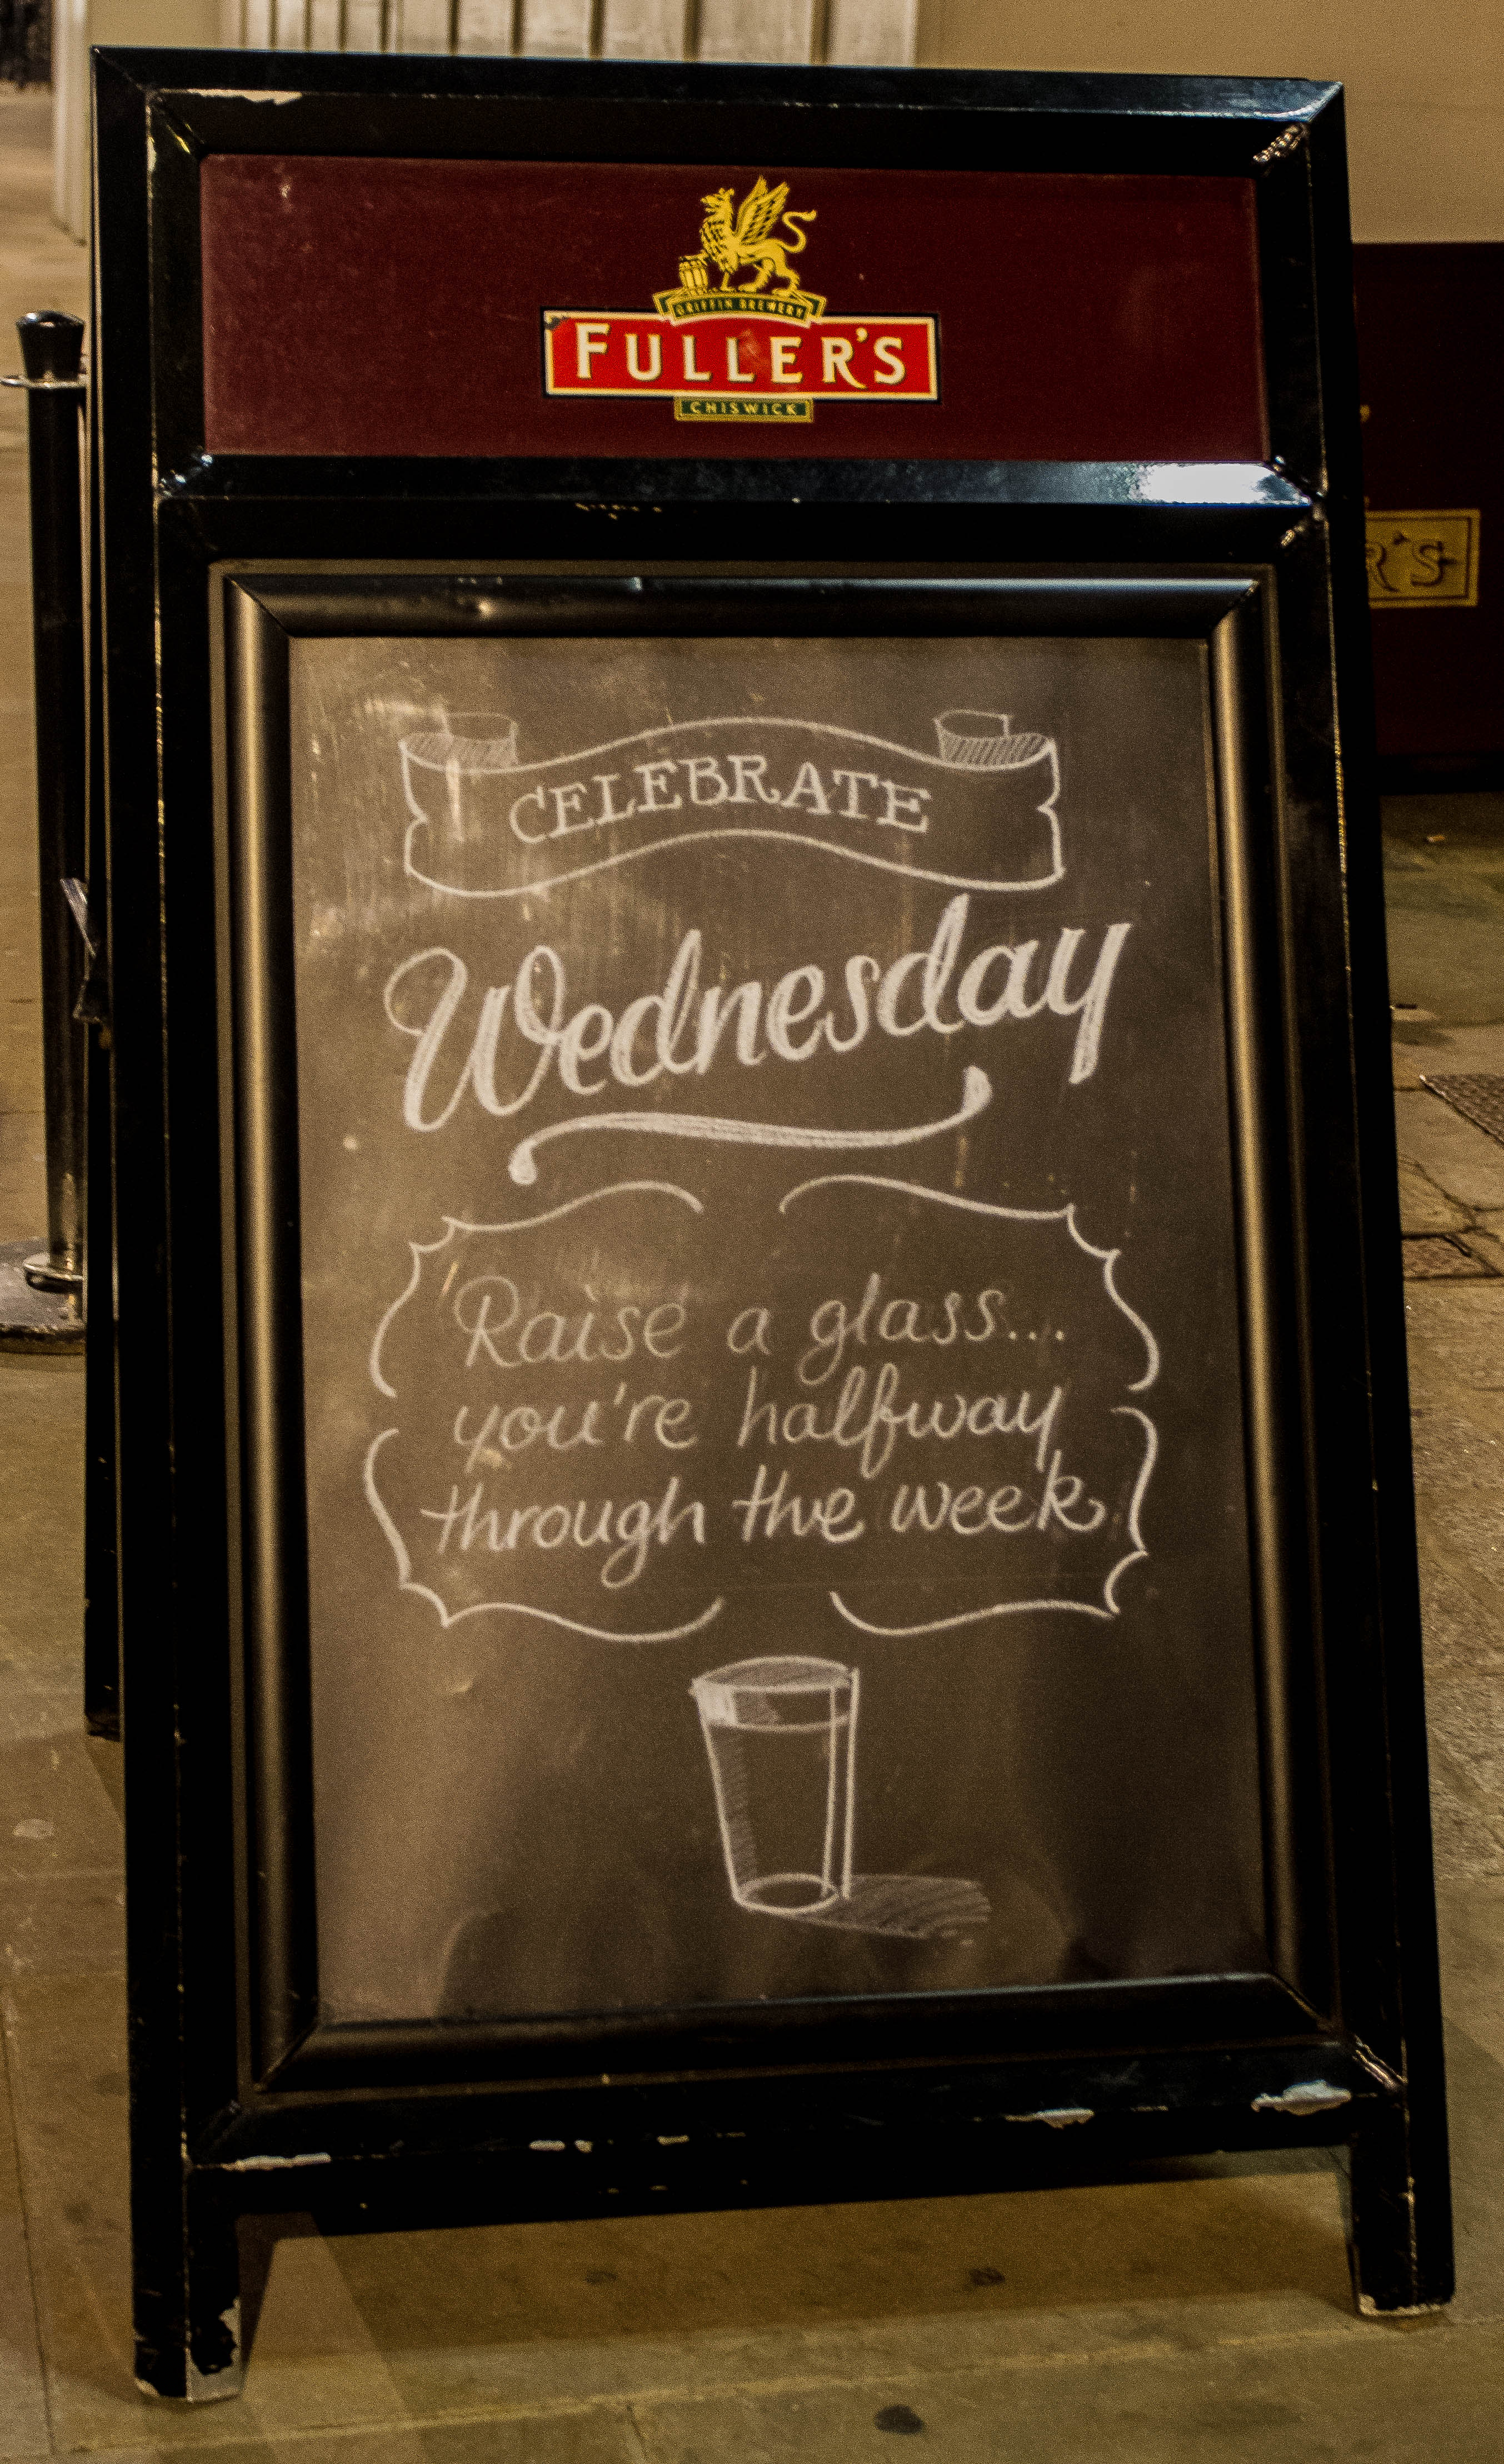 GRIFFIN BREWERY
FULLER'S
CHISWICK
R'S
CELEBRATE
Wednesday
Raise a glass...
you're halfway
through the week